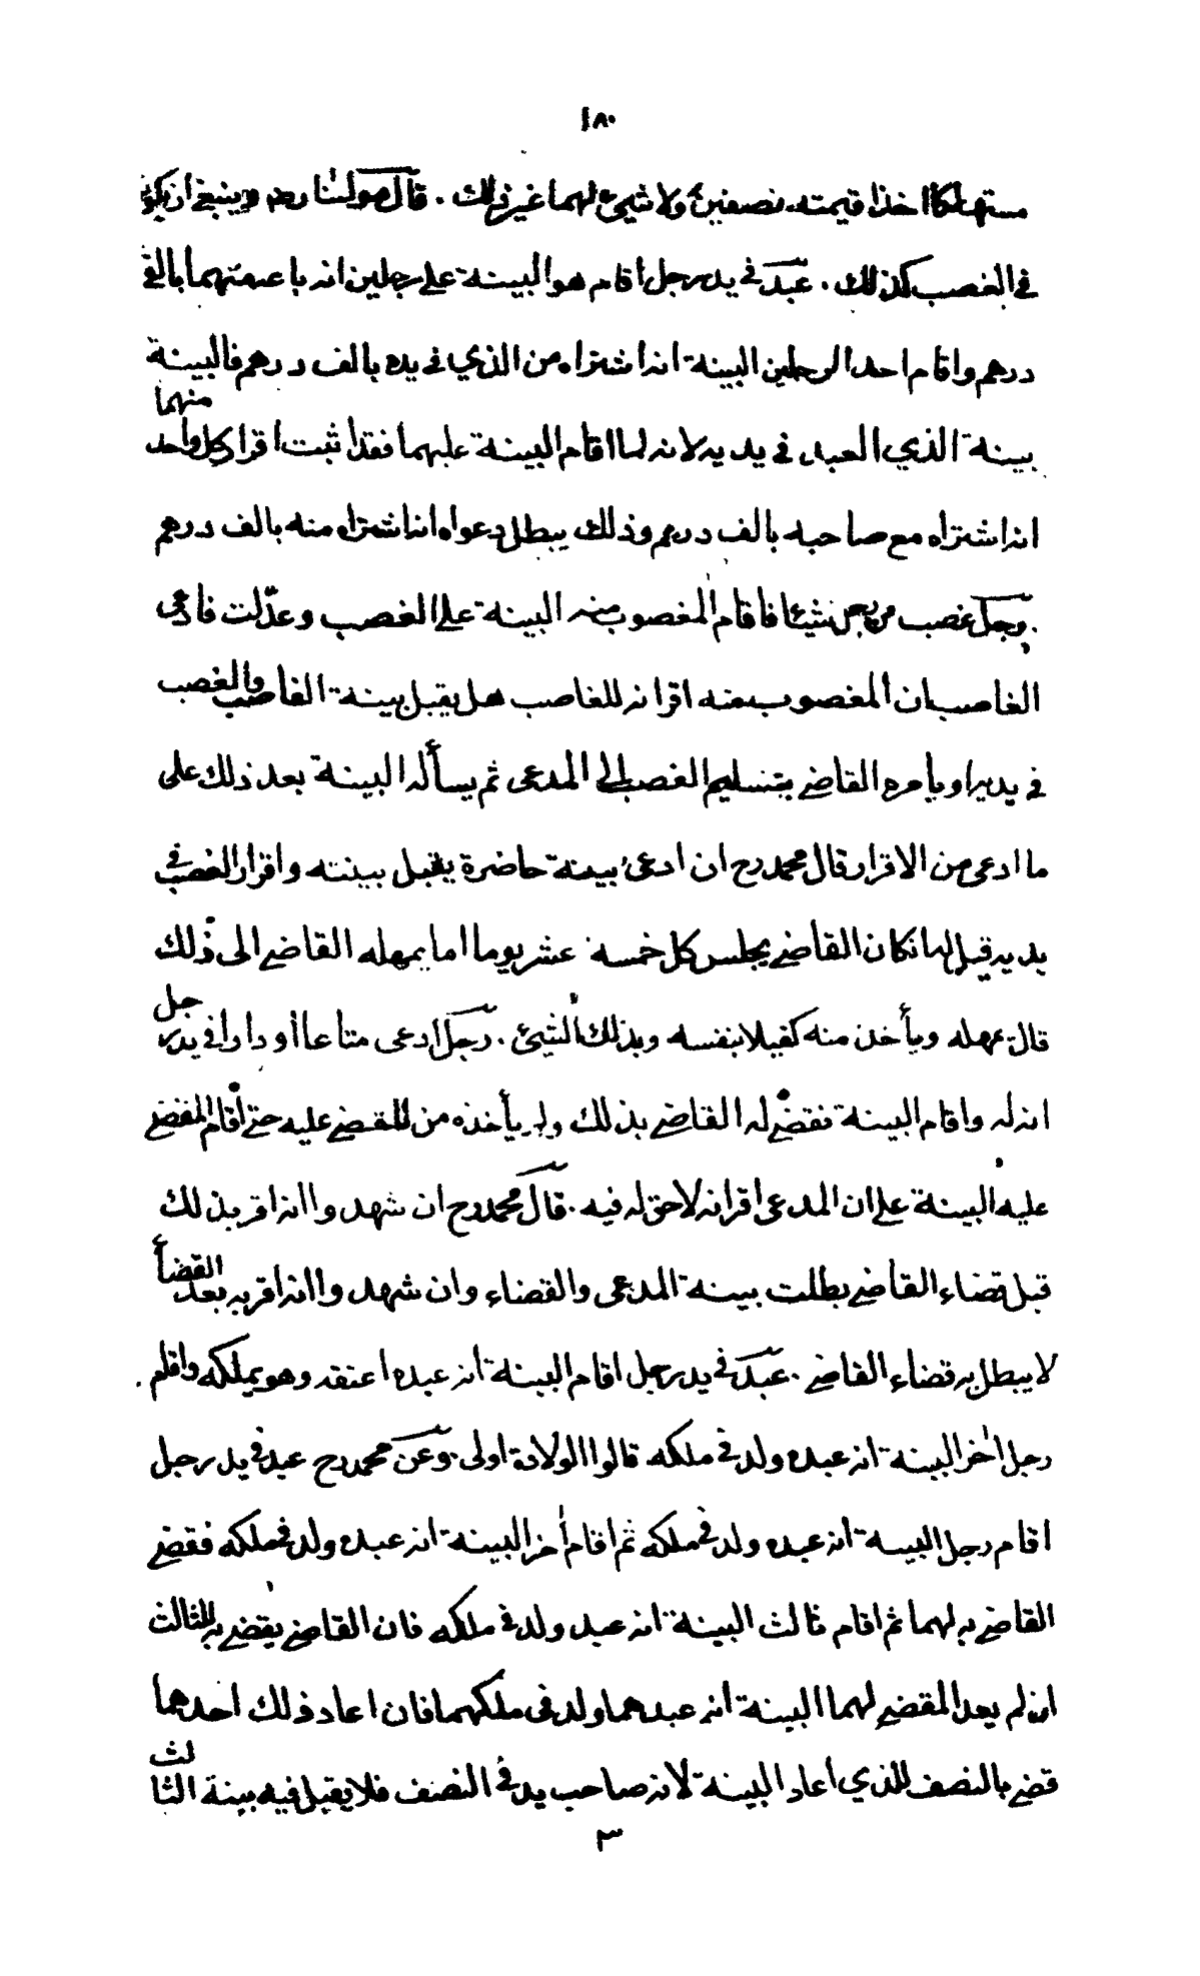 ١٨٠
مستهلكا اخذا قيمته نصفين ولا شيئ لهما غير ذلك . قال مولٰنا رضـ وينبغي ان يكون
في الغصب كذلك . عبد في يد رجل اقام هو البينة على رجلين انه باعه منهما بالف
درهم واقام احد الرجلين البينة انه اشتراه من الذي في يده بالف درهم فالبينة
بينة الذي العبد في يديه لانه لما اقام البينة عليهما فقد اثبت اقرار كل واحد منهما
انه اشتراه مع صاحبه بالف درهم وذلك يبطل دعواه انه اشتراه منه بالف درهم
. رجل غصب من رجل شيئا فاقام المغصوب منه البينة على الغصب وعدّلت فادعى
الغاصب ان المغصوب منه اقر انه للغاصب هل يقبل بينة الغاصب والغصب
في يديه او يأمره القاضي بتسليم الغصب الى المدعى ثم يسأله البينة بعد ذلك على
ما ادعى من الاقرار قال محمد رح ان ادعى بينة حاضرة يقبل بينته واقرار الغصب في
يديه قيل له ان كان القاضي يجلس كل خمسة عشر يوما اما يمهله القاضي الى ذلك
قال يمهله ويأخذ منه كفيلا بنفسه وبذلك الشيئ . رجل ادعى متاعا او دارا في يد رجل
انه له واقام البينة فقضى له القاضي بذلك ولم يأخذه من المقضي عليه حتى اقام المقضي
عليه البينة على ان المدعى اقر انه لا حق له فيه . قال محمد رح ان شهدوا انه اقر بذلك
قبل قضاء القاضي بطلت بينة المدعى والقضاء وان شهدوا انه اقر به بعد القضأ
لا يبطل به قضاء القاضي . عبد في يد رجل اقام البينة انه عبده اعتقه وهو يملكه واقام
رجل اٰخر البينة انه عبده ولد في ملكه قالوا الولادة اولى . وعن محمد رح عبد في يد رجل
اقام رجل البينة انه عبده ولد في ملكه ثم اقام اٰخر البينة انه عبده ولد في ملكه فقضى
القاضي به لهما ثم اقام ثالث البينة انه عبد ولد في ملكه فان القاضي يقضي به للثالث
ان لم يعد المقضي لهما البينة انه عبدهما ولد في ملكهما فان اعاد ذلك احدهما
قضي بالنصف للذي اعاد البينة لانه صاحب يد في النصف فلا يقبل فيه بينة الثالث
٣